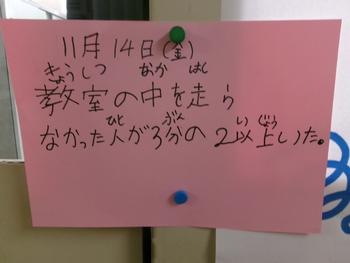 11月14日(金)
きょうしつ なか はし
教室の中を走ら
ひと ぶん い じょう
なかった人が3分の2以上いた。